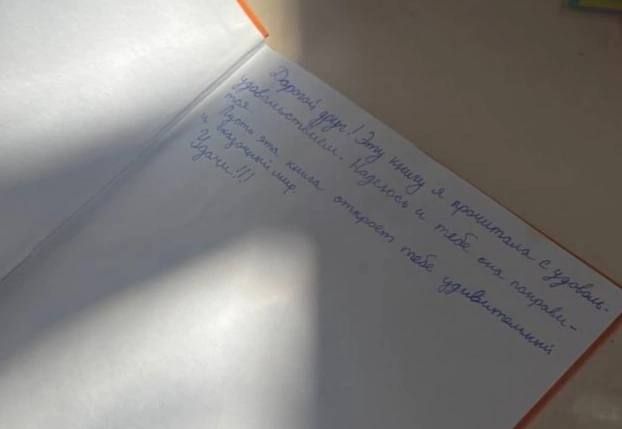 Дорогой друг! Эту книгу я прочитала с удоволь-
удовольствием. Надеюсь и тебе она понрави-
тся.
Пусть эта книга откроет тебе удивительный
и сказочный мир.
Удачи!!!